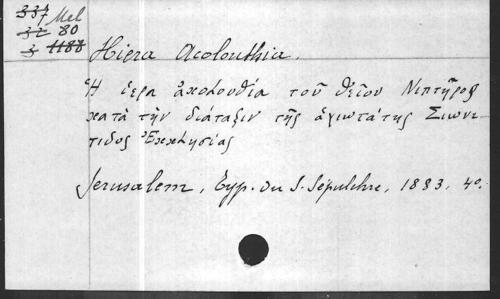 337 Mel
32 80
3 1188
Hiera Acolouthia.
Ἡ ἱερα ἀκολουθία τοῦ θείου Νιπτῆρος
κατὰ τὴν διάταξιν τῆς ἁγιωτάτης Σιωνι-
τιδος Ἐκκλησίας
Jerusalem, Typ. du S. Sépulchre, 1883, 4o.